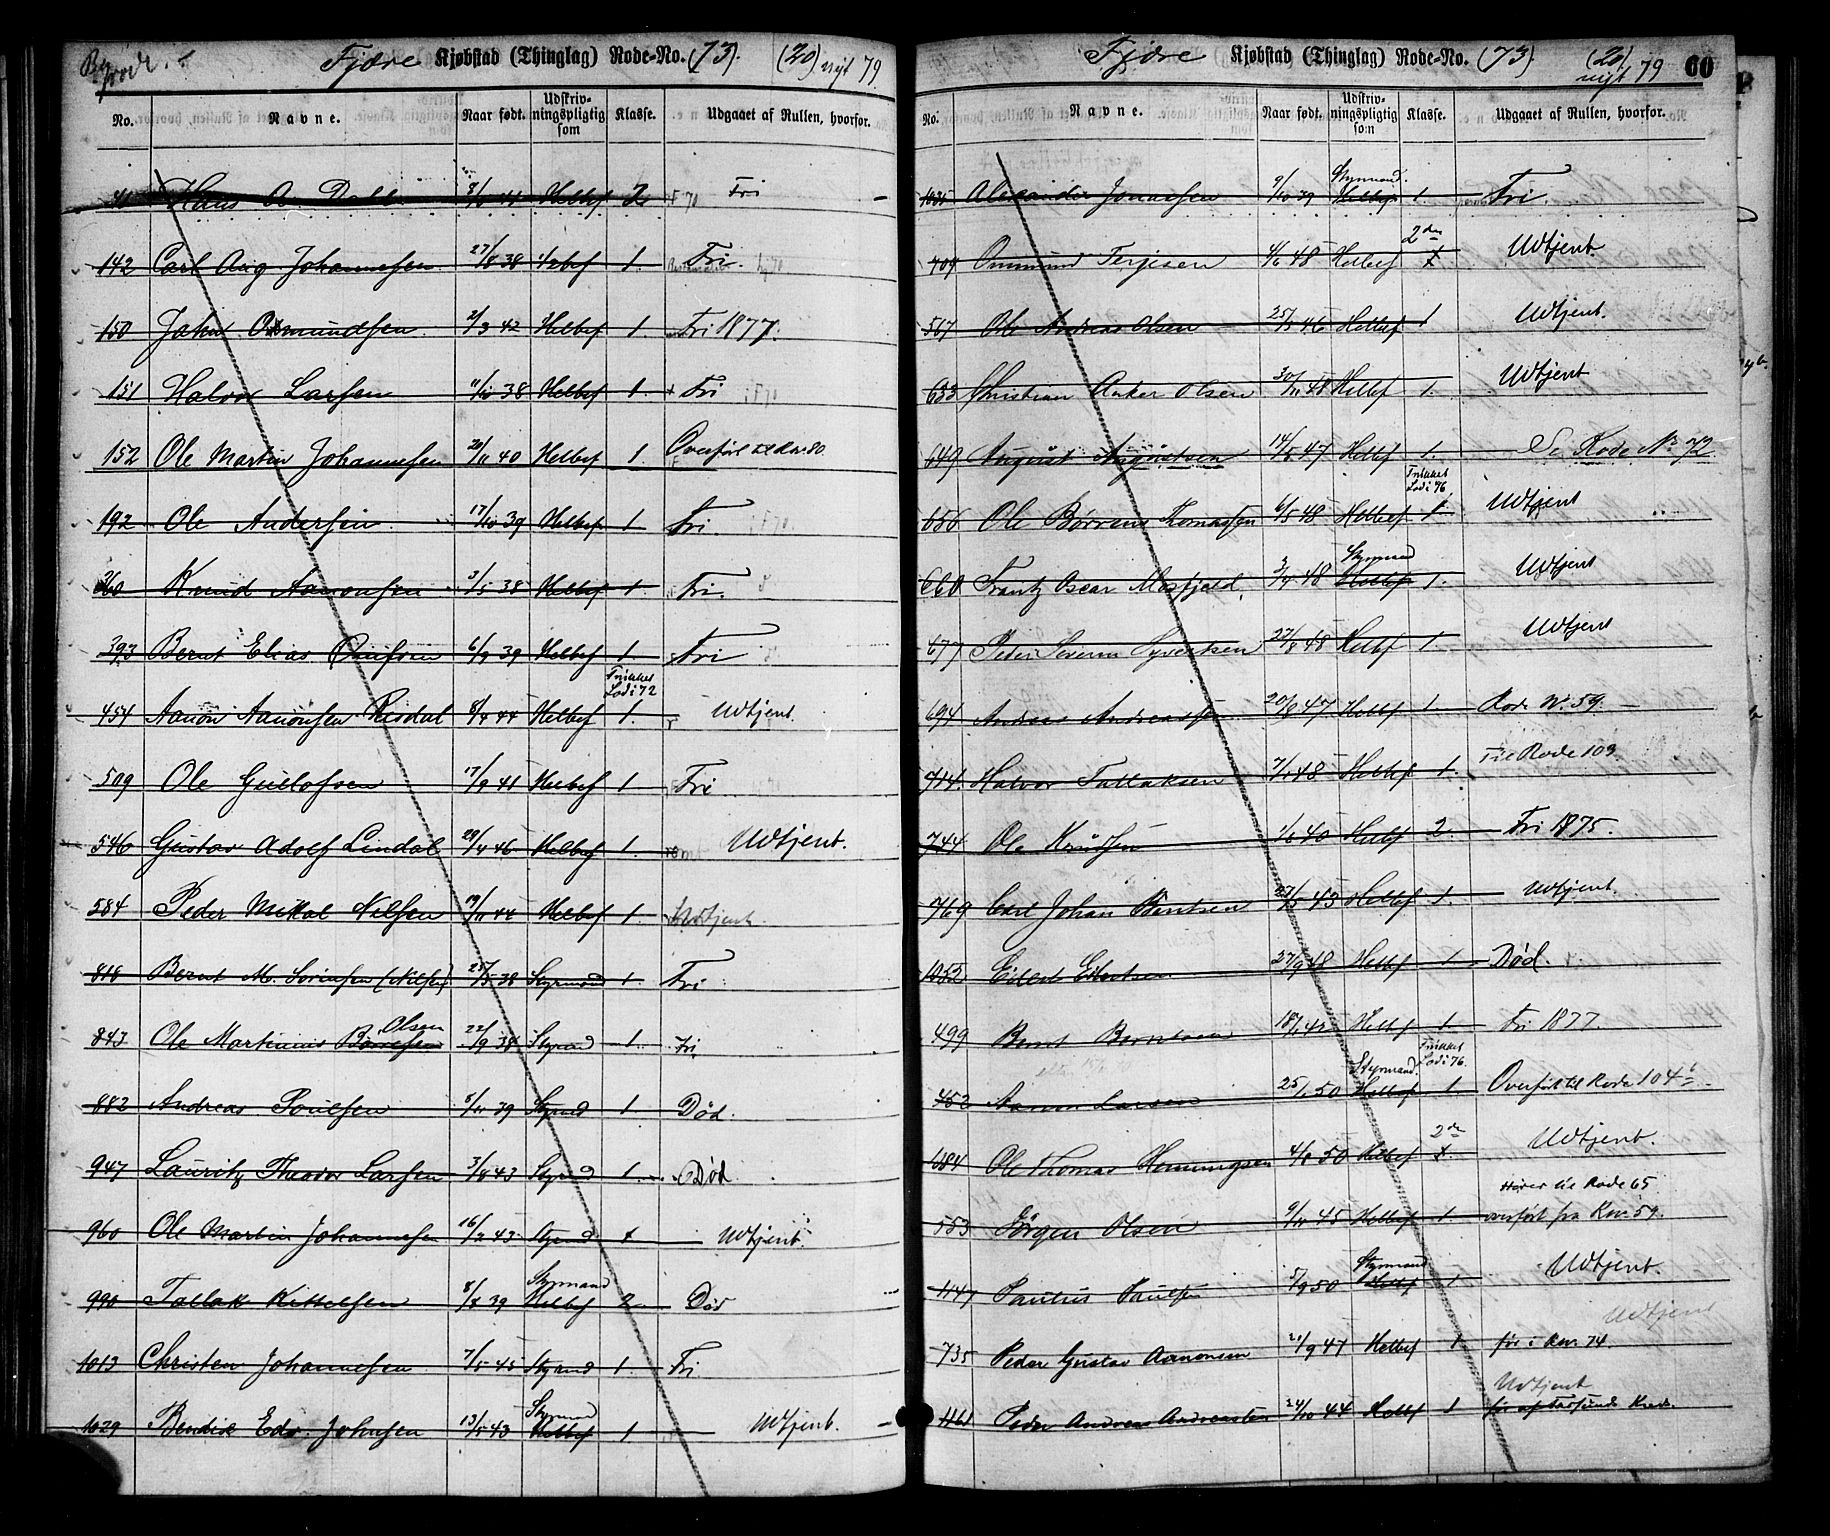 Fjære Kjøbstad (Thinglag) Rode-No. (73). (20) nyt 79.
No. Navne. Naar født. Udskrivningspligtig som Klasse. Udgaaet af Rullen, hvorfor.
41 Hans A. Dahl 44 Helbef 2 Fri
142 Carl Aug Johannesen 27/8 38 Helbef 1. Fri.
150 John Osmundsen 2/3 42 Helbef 1. Fri 1877.
151 Halvor Larsen 11/10 38 Helbef 1. Fri
152 Ole Martin Johannesen 20/11 40 Helbef 1. Overført til Rno 80
192 Ole Andersen 17/10 39 Helbef 1 Fri.
360 Knud Aanonsen 3/5 38 Helbef 1. Fri.
393 Bernt Elias Poulsen 6/9 39 Helbef 1. Fri
Trukket Lod i 72
454 Aanon Aanonsen Risdal 8/4 44 Helbef 1. Udtjent.
509 Ole Gullofsen 17/9 41 Helbef 1 Fri
546 Gustav Adolf Lindal 29/4 46 Helbef 1. Udtjent.
584 Peder Mikal Nilsen 19/11 44 Helbef 1. Udtjent.
818 Bernt M. Sørensen (Nilsen) 25/5 38 Styrmand 1. Fri
Olsen
843 Ole Martinius Børresen 22/9 38 Styrmd 1. Fri
882 Andreas Poulsen 5/11 39 Styrmd 1 Død.
947 Lauritz Theodor Larsen 3/8 43 Styrmd 1. Død
960 Ole Martin Johannesen 16/2 43 Styrmd 1 Udtjent.
Styrmand
990 Tallak Kittelsen 8/8 39 Helbef 2 Død
1013 Christen Johannesen 7/5 45 Styrmd 1. Fri
Styrmd
1029 Bendix Edv. Johnsen 13/5 43 Helbef 1 Udtjent.
Fjære Kjøbstad (Thinglag) Rode-No. (73). (20) nyt 79 60
No. Navne. Naar født. Udskrivningspligtig som Klasse. Udgaaet af Rullen, hvorfor.
Styrmand.
1035 Alexander Jonassen 9/10 39 Helbef 1. Fri.
2den
709 Ommund Terjesen 4/6 48 Helbef 1 Udtjent.
567 Ole Andreas Olsen 25/5 46 Helbef 1 Udtjent.
633 Christian Anker Olsen 30/11 48 Helbef 1. Udtjent
649 August Augustsen 14/5 47 Helbef 1. Se Rode No 72
Trukket Lod i 76
656 Ole Børrens Thomassen 6/5 48 Helbef 1 Udtjent
Styrmand
660 Frantz Oscar Mosfjeld. 3/7 48 Helbef 1. Udtjent
677 Peder Severin Syvertsen 27/8 48 Helbef 1. Udtjent
694 Anders Andreassen 20/8 47 Helbef 1 Rode No. 59.
714. Halvor Tallaksen 7/1 48 Helbef 1. Til Rode 103.
744 Ole Knudsen 1/6 40 Helbef 2 Fri 1875.
769 Carl Johan Berntsen 27/5 43 Helbef 1. Udtjent.
1055 Eilert Eilertsen 27/9 48 Helbef 1 Død.
499 Bernt Berntsen 18/1 42 Helbef 1. Fri 1877.
Styrmand. Trukket Lod i 76.
452 Aanon Larsen 25/1 50 Helbef 1. Overført til Rode 104
2de
684 Ole Thomas Hemmingsen 4/8 50 Helbef 1. Udtjent.
Hører til Rode 65
553 Jørgen Olsen 9/11 45 Helbef 1 overført fra Rno 59.
Styrmand
1147 Paulus Paulsen 5/9 50 Helbef 1 Udtjent.
Udtjent
735 Peder Gustav Aanonsen 21/9 47 Helbef 1 før i Rno 74.
Udtjent
1161 Peder Andreas Andreassen 24/10 44 Helbef 1